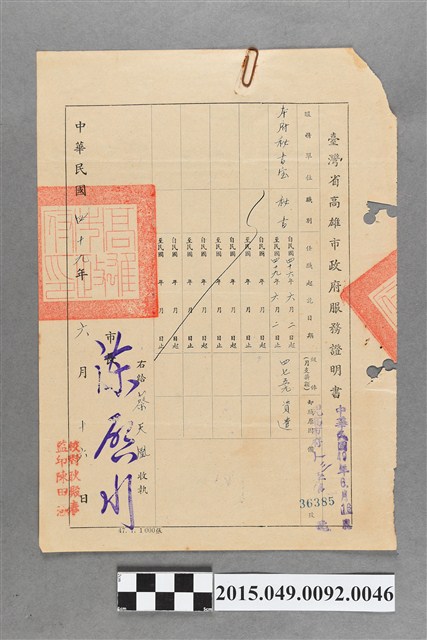 臺灣省高雄市政府服務證明書
服務單位 職別 任職起訖日期
本府秘書室 秘書 自民國四十六年六月二日起
至民國四十九年六月二日止
資遣
自民國 年 月 日起
至民國 年 月 日止
自民國 年 月 日起
至民國 年 月 日止
自民國 年 月 日起
至民國 年 月 日止
自民國 年 月 日起
至民國 年 月 日止
右給蔡天 收執
市長
陳啓川
中華民國四十九年六月十 日
高雄市政府印
監印陳田
36385
47. 1. 1000張
2015.049.0092.0046